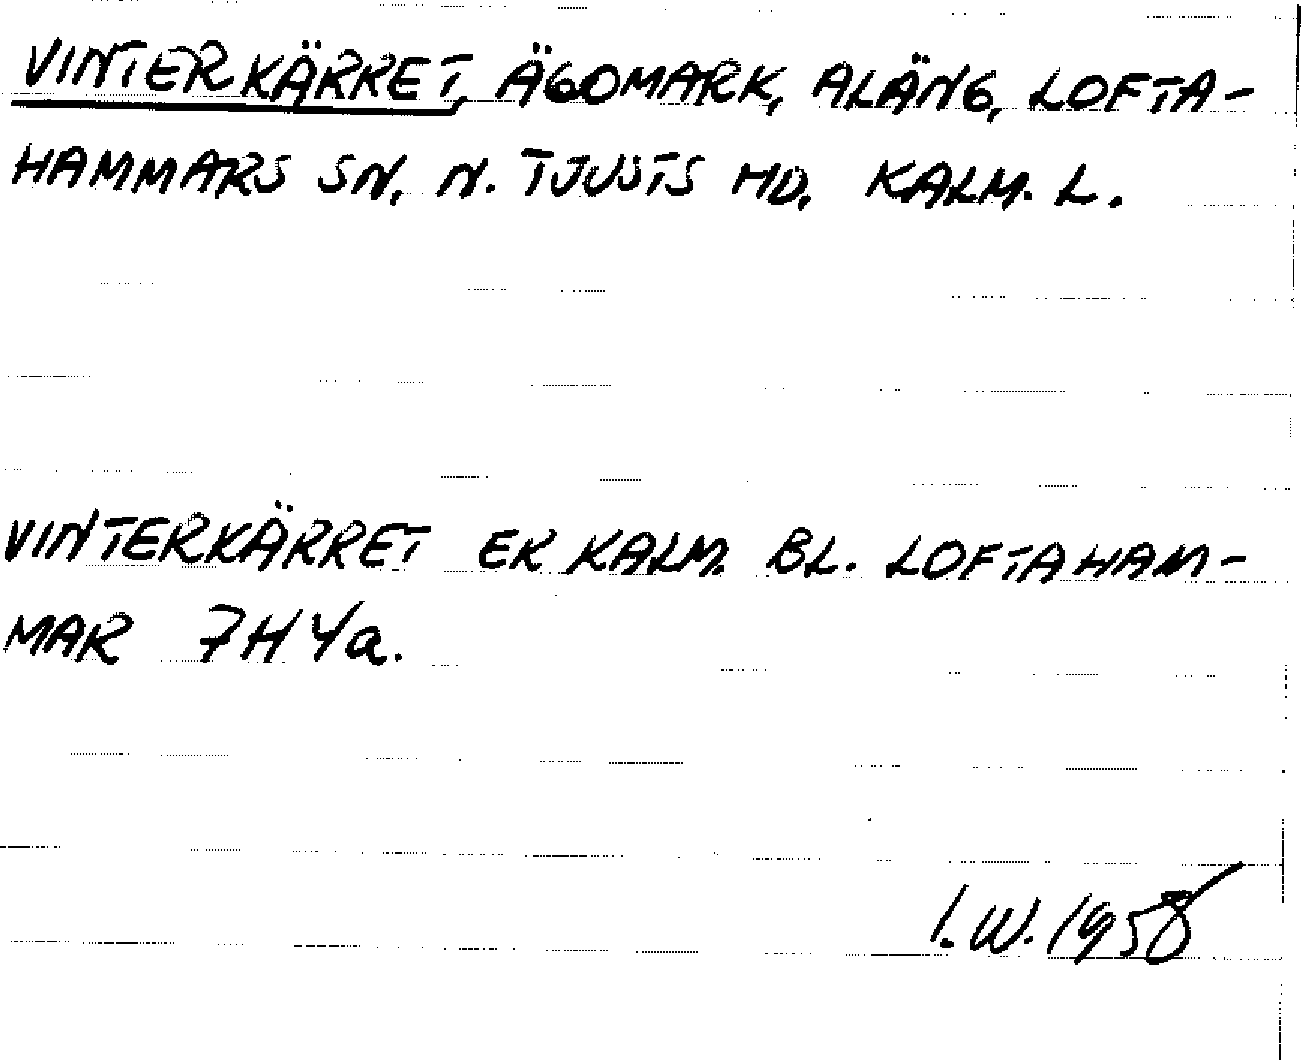 VINTERKÄRRET, ÄGOMARK, ALÄNG, LOFTA-
HAMMARS SN, N. TJUSTS HD, KALM. L.
VINTERKÄRRET EK KALM. BL. LOFTAHAM-
MAR 7H4a.
I.W. 1958